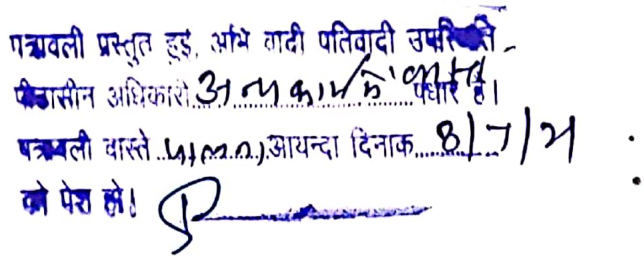 पत्रावली प्रस्तुत हुई, अभि वादी पतिवादी उपस्थिति
पीठासीन अधिकारी अन्य कार्य में व्यस्त पधारे है।
पत्रावली वास्ते ............ आयन्दा दिनाक 8/7/21
को पेश हो।